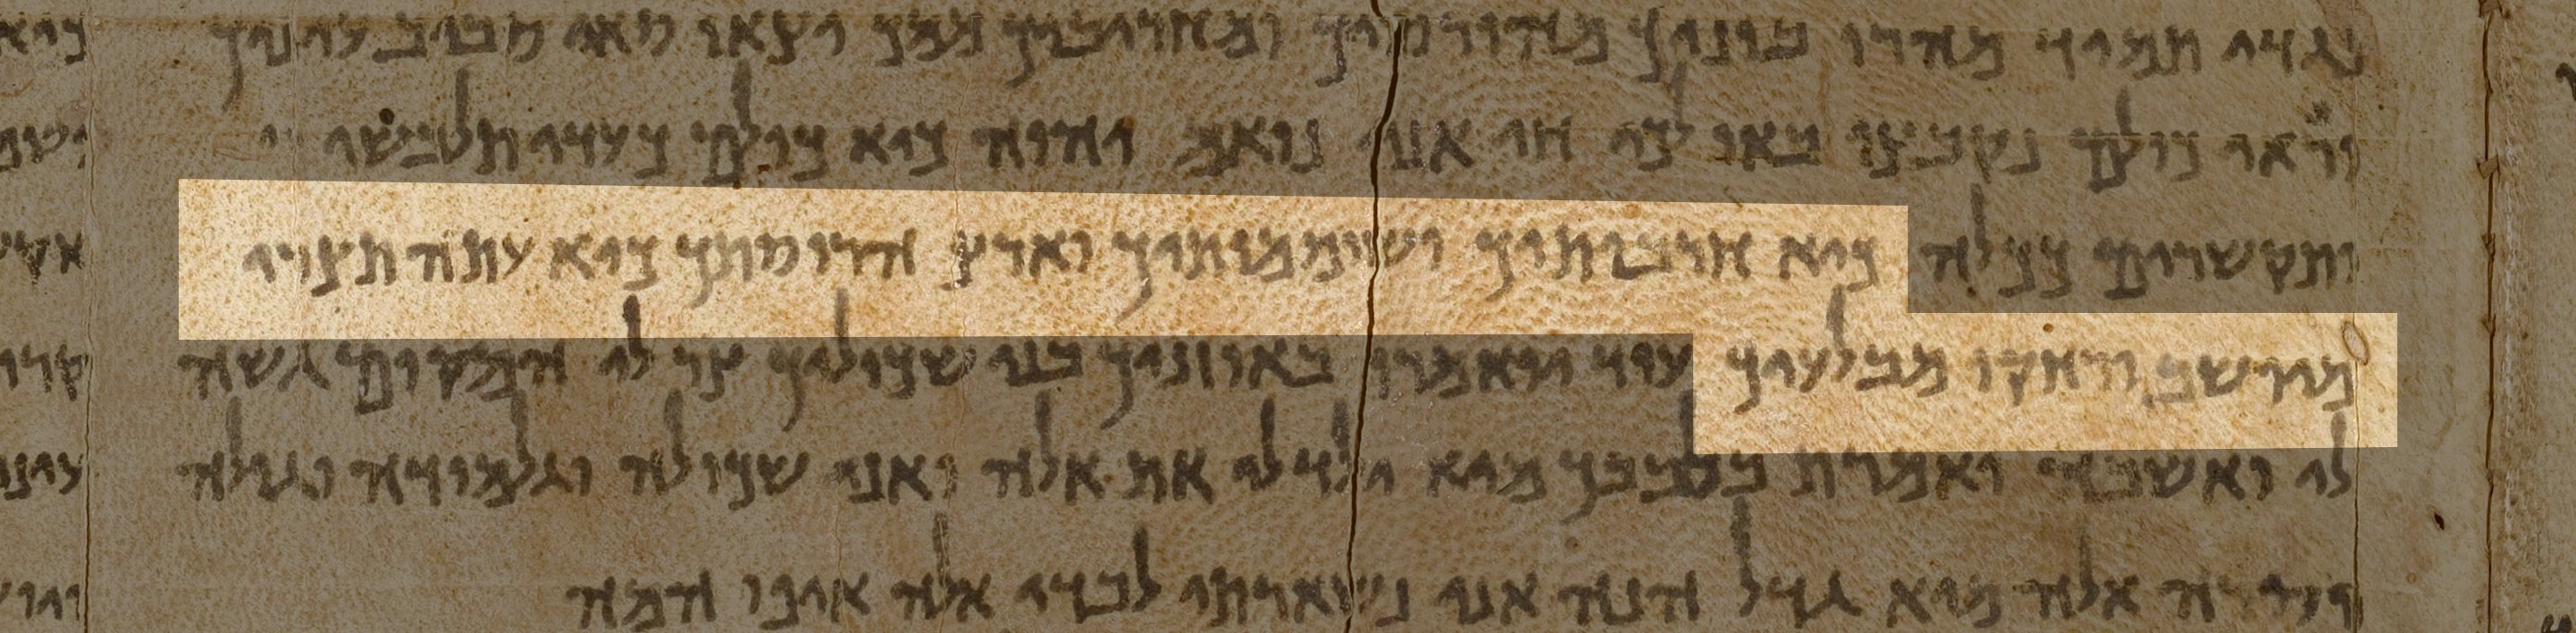 נגדי תמיד מהרו בוניך מהורסיך ומחריביך ממך יצאו שאי סביב עיניך
וראי כולם נקבצו באו לך חי אני נואם יהוה כיא כולם כעדי תלבשי
ותקשרים ככלה כיא חרבותיך ושוממותיך וארץ הריסותך כיא עתה תצרי
מיושב ורחקו מבלעיך עוד יואמרו באוזניך בני שכוליך צר לי המקום גשה
לי ואשבה ואמרת בלבבך מיא ילד לי את אלה ואני שכולה וגלמודה וגולה
וסרה אלה מיא גדל הנה אני נשארתי לבדי אלה איפו המה